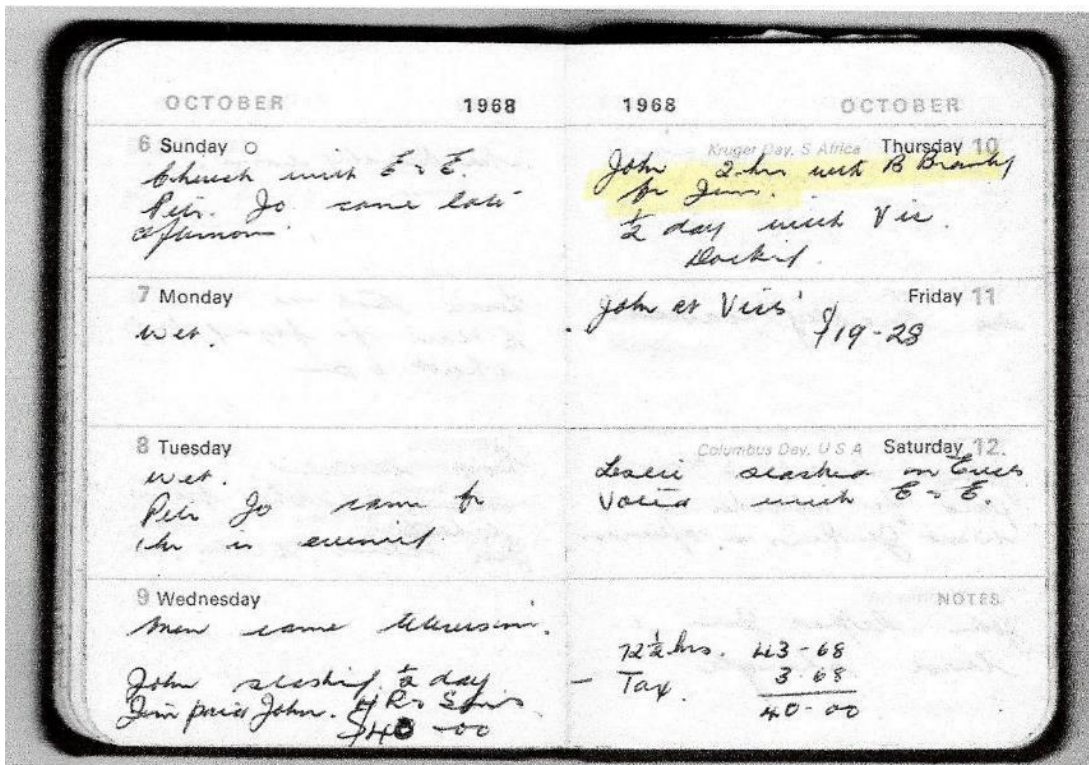 OCTOBER 1968
6 Sunday
Church with E & E.
Petr. Jo came late
afternoon.
7 Monday
wet.
8 Tuesday
wet.
Petr Jo came for
1 hr in evening
9 Wednesday
Men came television.
John slashing ½ day
Jim paid John. 4 Rs
$40-00
1968 OCTOBER
Kruger Day, S Africa Thursday 10
John 2 hrs with B
for Jim.
½ day with Vic.
Docking.
Friday 11
John at Vics'
$19-28
Columbus Day, U S A Saturday 12
Leslie slashed on Erics
Voted with E & E.
NOTES
72½ hrs. 43-68
- Tax. 3.68
40-00